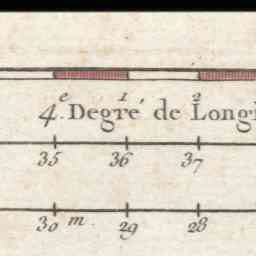 1 2
4.e Degré de Longi
35 36 37
30 m. 29 28